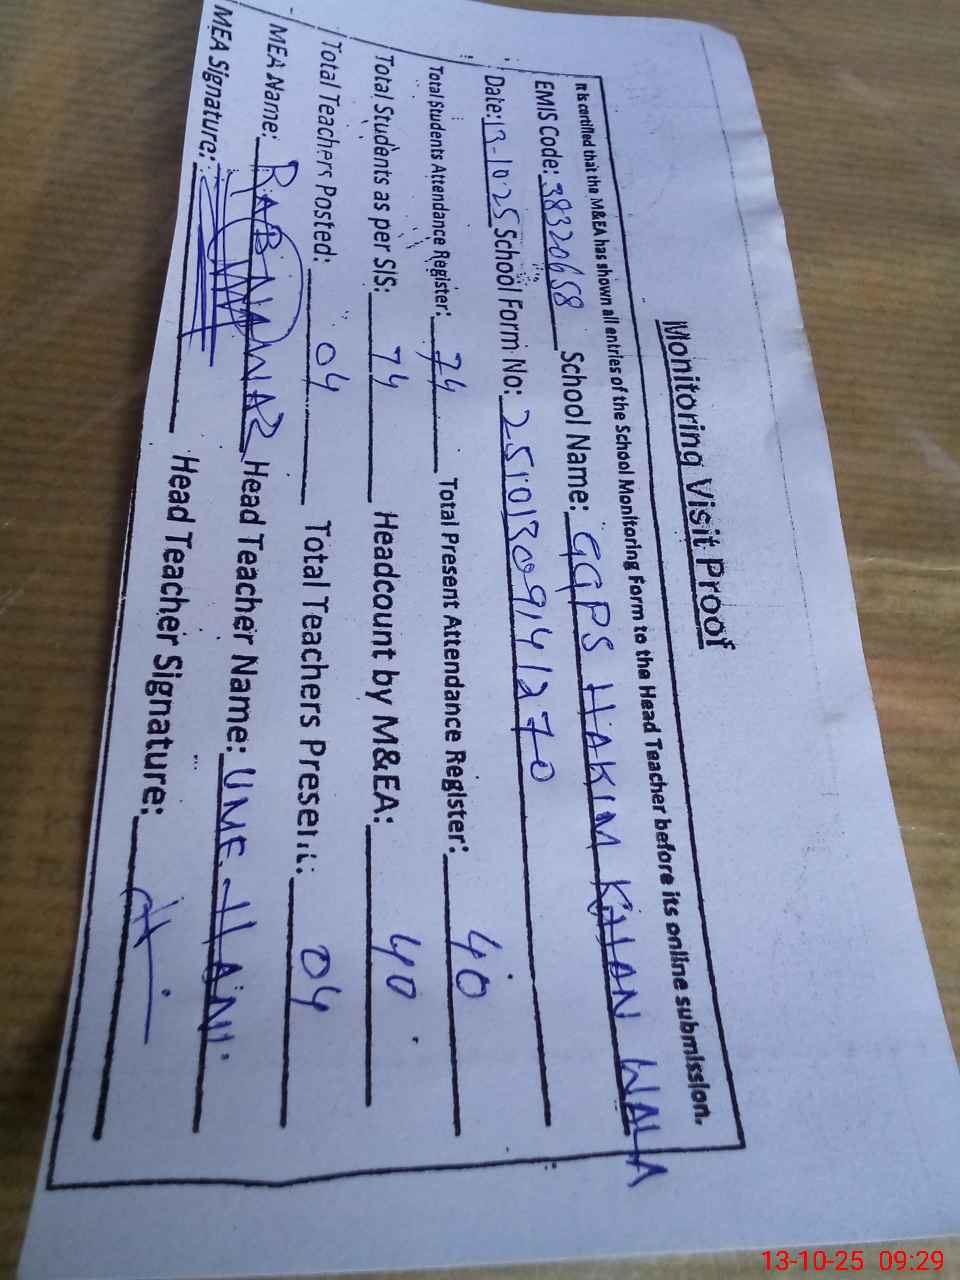 Monitoring Visit Proof
It is certified that the M&EA has shown all entries of the School Monitoring Form to the Head Teacher before its online submission.
EMIS Code: 38320658 School Name: GGPS HAKIM KALAN WALA
Date: 13-10-25 School Form No: 25101309141270
Total Students Attendance Register: 74 Total Present Attendance Register: 40
Total Students as per SIS: 74 Headcount by M&EA: 40
Total Teachers Posted: 04 Total Teachers Present: 04
MEA Name: RAB NAWAZ Head Teacher Name: UME HANI
MEA Signature: Head Teacher Signature:
13-10-25 09:29